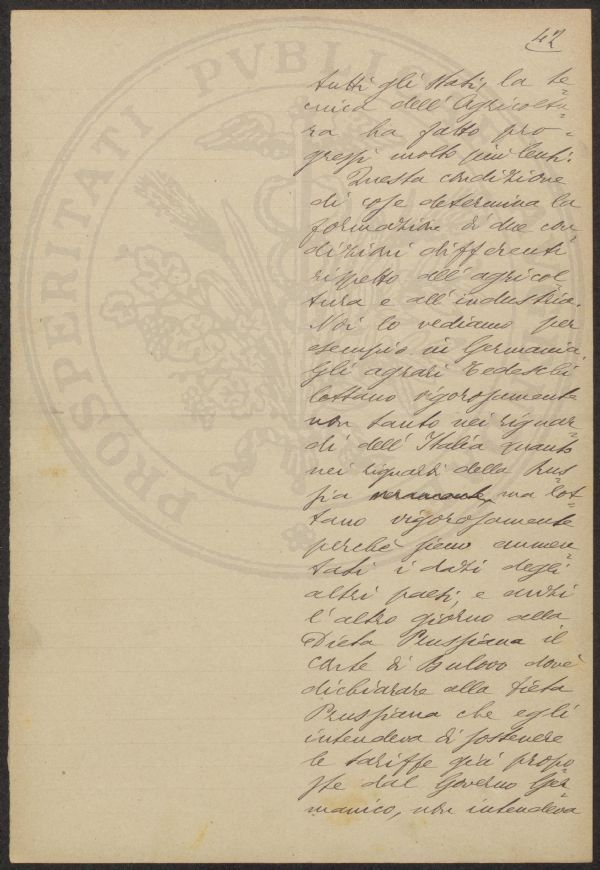 42
tutti gli Stati, la te-
cnica dell'Agricoltu-
ra ha fatto pro-
gressi molto più lenti.
Questa condizione
di cose determina la
formazione di due con-
dizioni differenti
rispetto all'agricol
tura e all'industria.
Noi lo vediamo per
esempio in Germania.
Gli agrari Tedeschi
lottano vigorosamente
non tanto nei riguar-
di dell'Italia quanto
nei riguardi della Rus-
sia veramente, ma lot-
tano vigorosamente
perchè sieno aumen-
tati i dazi degli
altri paesi, e anzi
l'altro giorno alla
Dieta Prussiana il
Conte di Bulow dovè
dichiarare alla Dieta
Prussiana che egli
intendeva di sostenere
le tariffe già propo-
ste dal Governo Ger-
manico, non intendeva
PROSPERITATI PVBLIC